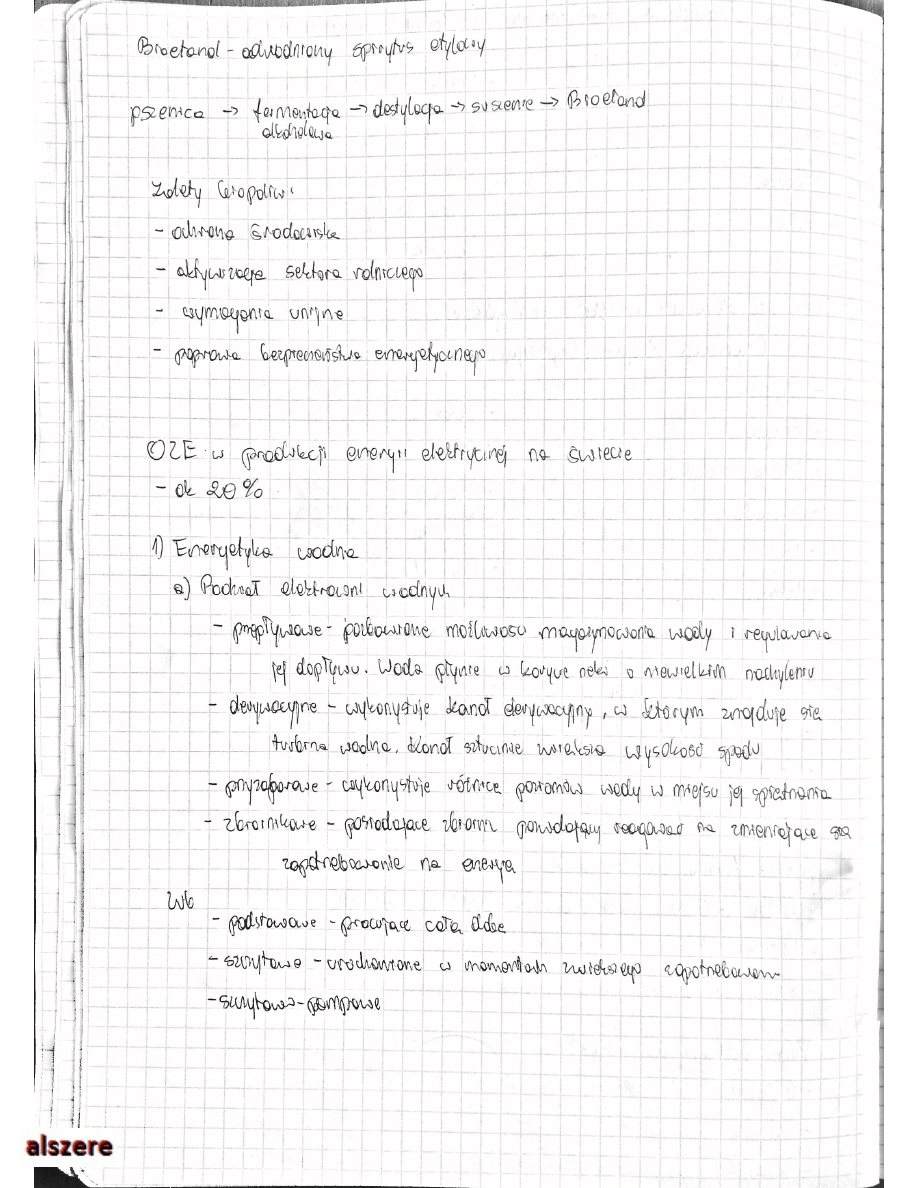 Bioetanol - odwodniony spirytus etylowy
pszenica → fermentacja → destylacja → suszenie → Bioetanol
alkoholowa
Zalety biopaliw:
- ochrona środowiska
- aktywizacja sektora rolniczego
- wymagania unijne
- poprawa bezpieczeństwa energetycznego
OZE w produkcji energii elektrycznej na świecie
- ok 20%
1) Energetyka wodna
a) Podział elektrowni wodnych
- przepływowe - pozbawione możliwości magazynowania wody i regulowania
jej dopływu. Woda płynie w korycie rzeki o niewielkim nachyleniu
- derywacyjne - wykorzystuje kanał derywacyjny, w którym znajduje się
turbina wodna. Kanał sztucznie zwiększa wysokość spadu
- przyzaporowe - wykorzystuje różnicę poziomów wody w miejscu jej spiętrzenia
- zbiornikowe - posiadające zbiornik pozwalający reagować na zmieniające się
zapotrzebowanie na energię
- podstawowe - pracujące całą dobę
- szczytowe - uruchamiane w momentach zwiększonego zapotrzebowania
- szczytowo-pompowe
alszere